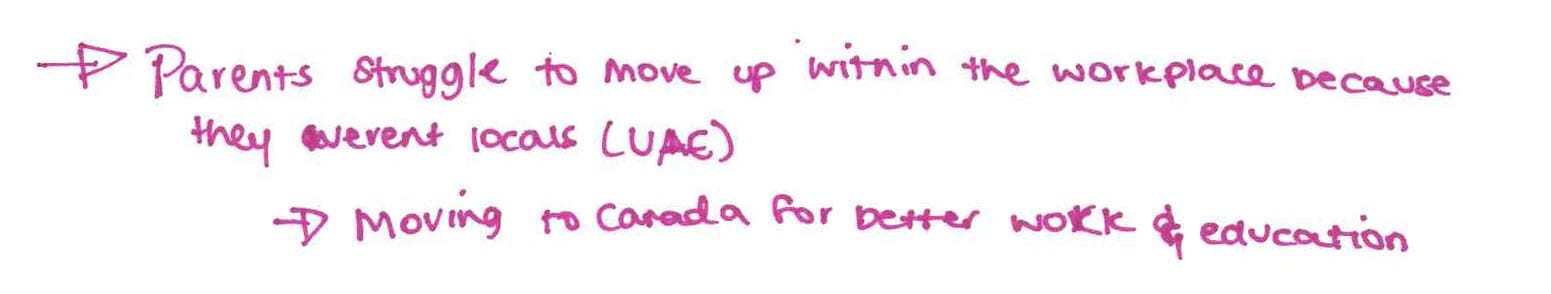 → Parents struggle to move up within the workplace because
they werent locals (UAE)
→ Moving to Canada for better work & education